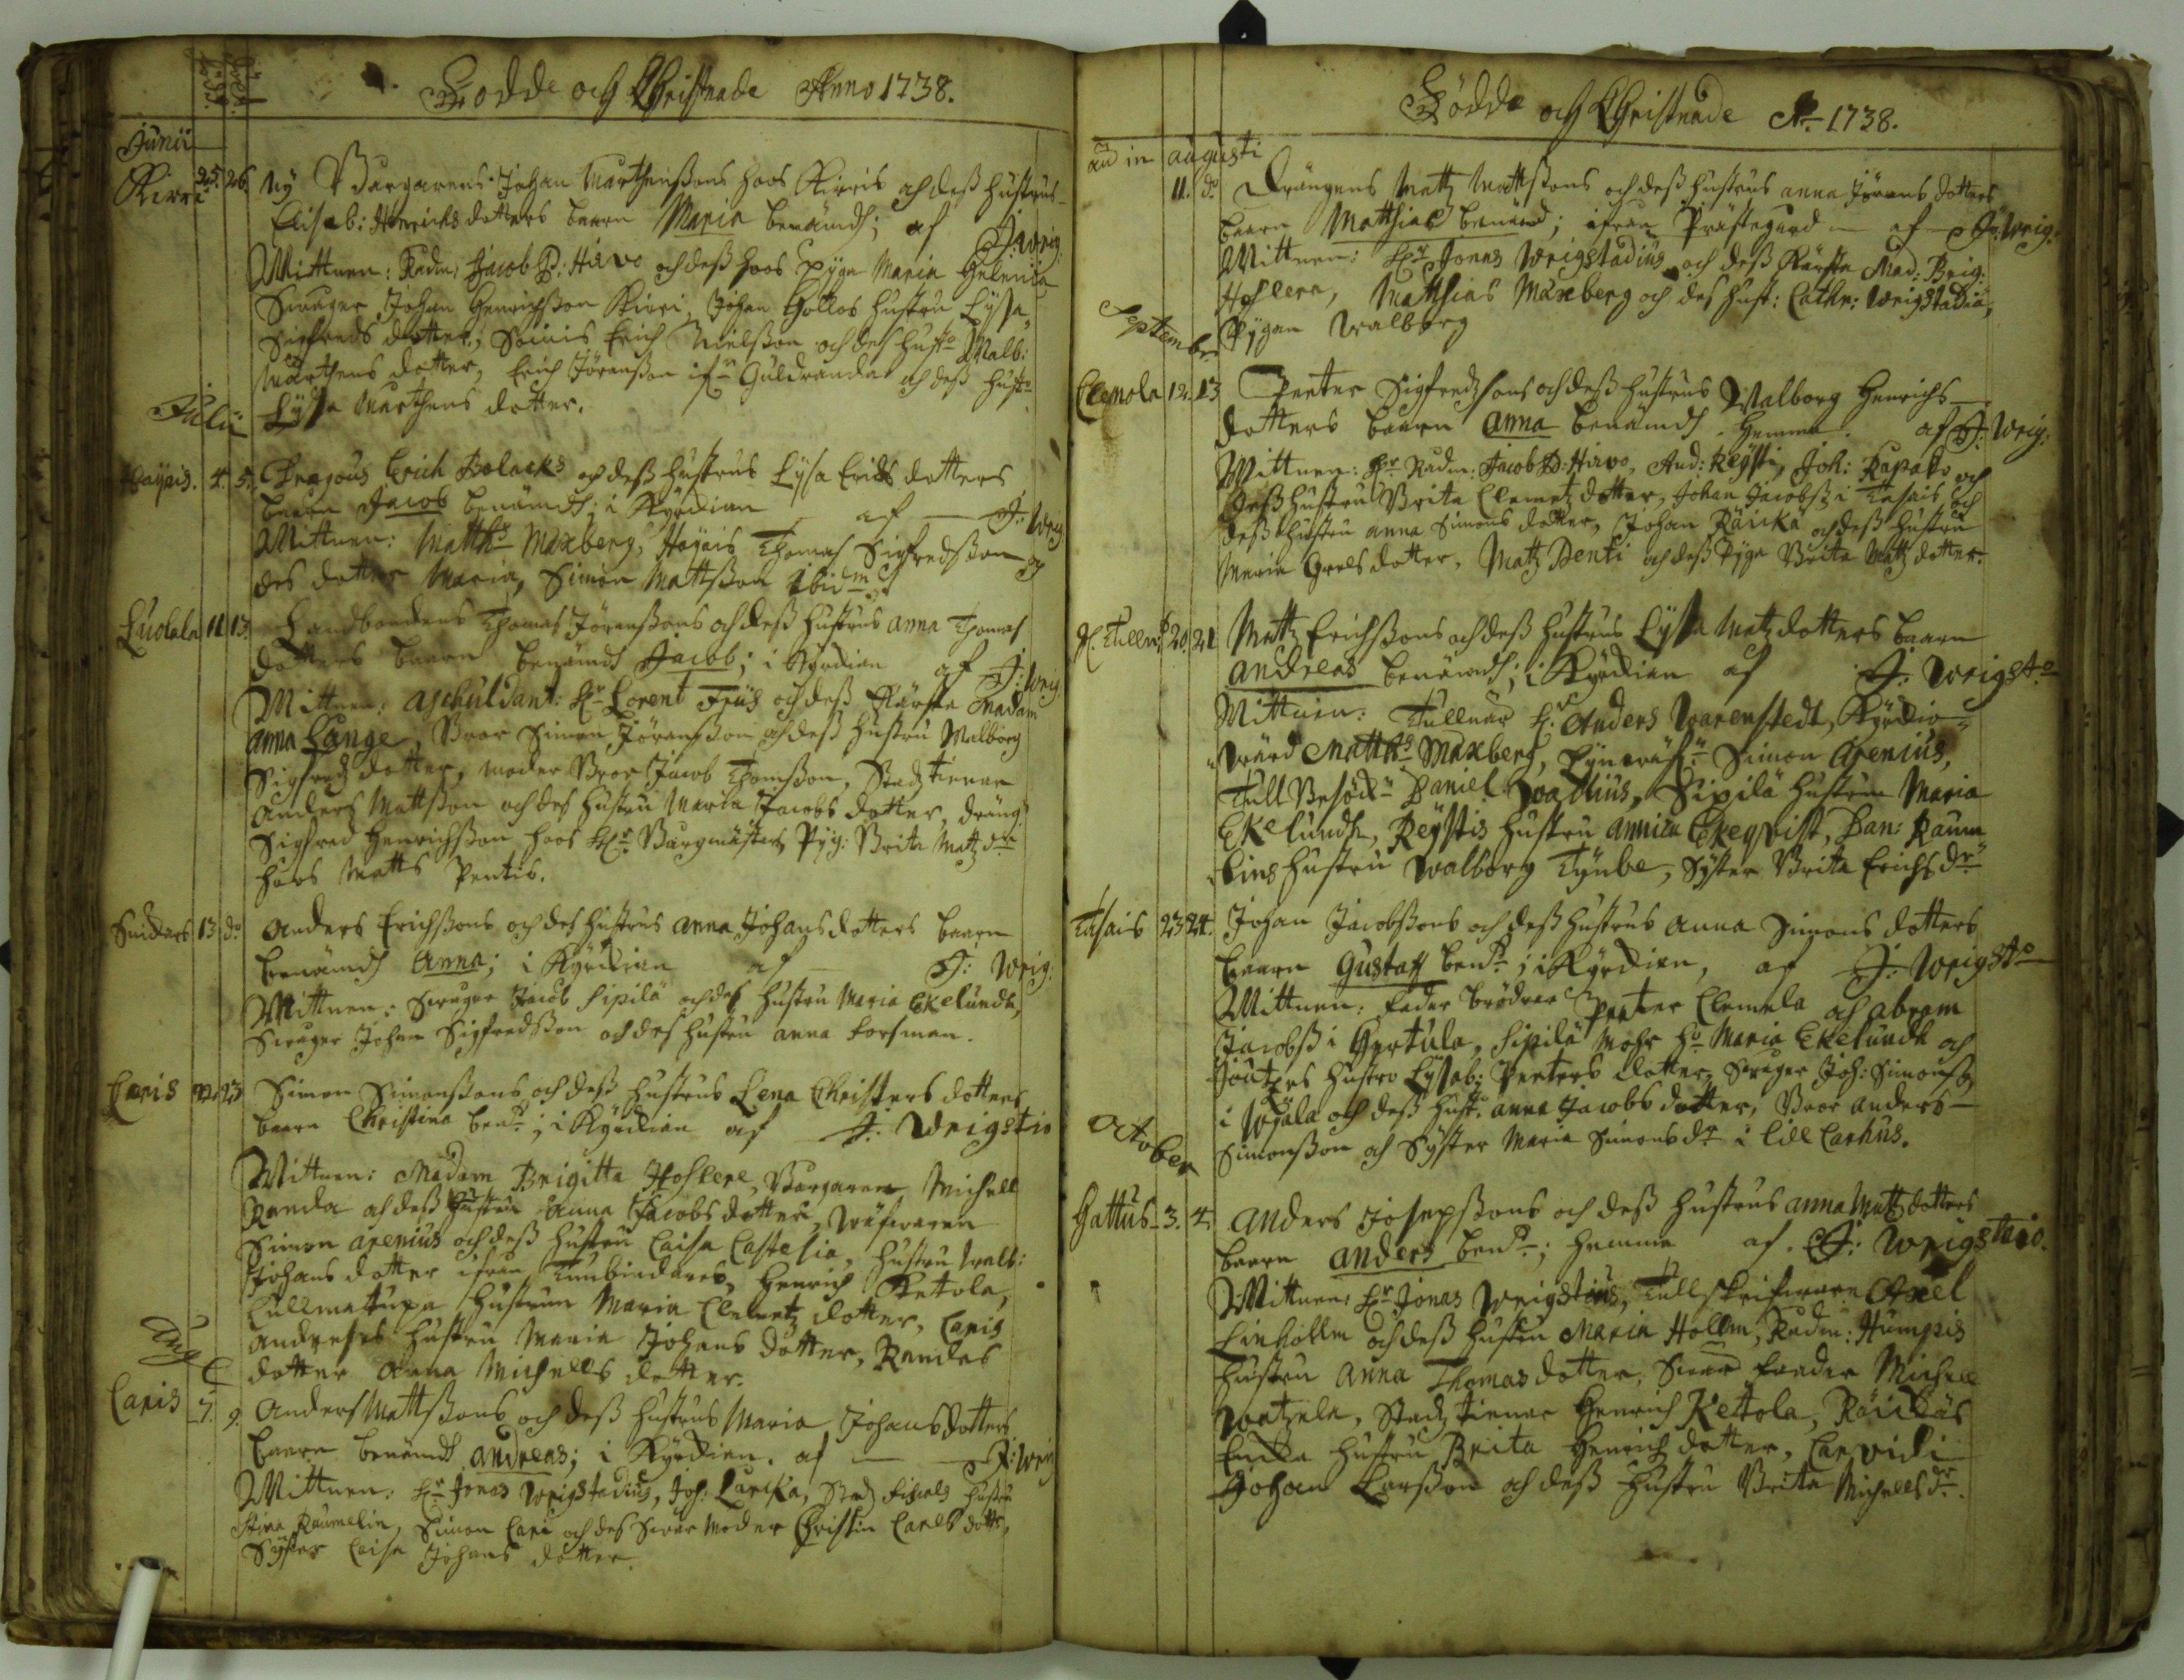 Födde och Christnade Anno 1738.
Junii
Kirri 25. 26. Ny Borgarens Johan Marthenssons hoos Kirris och dess hustrus
Elisab: Henrichs dotters baarn Maria benämdt; af J. Wrig:
Wittnen: Radm: Jacob P: Hirvo och dess hoos pyga Maria Helenia
Swager Johan Henrichsson Kirri, Johan Gollos hustru Lysa
Sigfreds dotter, Soinis Erich Nielsson och des hust: Walb:
Marthens dotter, Erich Jöransson ifrn Guldranda och dess hust:
Lysa Marthens dotter.
Julii
Haypis. 4. 5. Dragous Erich Polacks och dess hustrus Lysa Erichs dotters
baarn Jacob benämdt; i Kyrckian af J: Wrig
Wittnen: Matths Maxberg, Hoyais Thomas Sigfredsson
des dotter Maria, Simon Mattsson ibidm
Luolala 11 13. Landbondens Thomas Jöranssons och dess hustrus Anna Thomas
dotters baarn benämdt Jacob; i Kyrckian af J: Wrig
Wittnen: aschuldant: Hr Lorent Friis och dess Kärsta Madam
Anna Lange, Bror Simon Jöransson och dess hustru Walborg
Sigfredz dotter, moder Bror Jacob Thomsson, Stadz tienar
Anders Mattsson och des hustru Maria Jacobs dotter, dräng
Sigfred Henrichsson hoos Hr Burgmästar, Pyg: Brita Matz dr
hoos Matts Pentis.
Snidars 13 do Anders Erichssons och des hustrus Anna Johans dotters baarn
benämdt Anna; i Kyrckian af J: Wrig:
Wittnen: Swager Jacob Sipilä och des hustru Maria Ekelundh,
Swager Johan Sigfredsson och des hustru Anna Forsman.
Caris 22. 23 Simon Simonssons och dess hustrus Lena Christers dotters
baarn Christina bend; i Kyrckian af J: Wrigstio
Wittnen: Madam Brigitta Hoslere, Borgaren Michell
Randa och dess hustru Anna Jacobs dotter, Wäfwaren
Simon Arenius och dess hustru Caisa Castelia, hustru Walb:
Johans dotter ifrån Tunbindares, Henrich Ketola,
Cullmatupa hustrun Maria Clemetz dotter, Caris
Andreses hustru Maria Johans dotter, Randas
dotter Anna Michells dotter.
Aug
Caris 7. 9. Anders Mattssons och dess hustrus Maria Johans dotters
baarn benämdt Andreas; i Kyrckian. af J: Wrig
Wittnen: Hr Jonas Wrigstadius, Joh: Laricka, Stadz fiscals hustru
Stina Raumelin, Simon Cari och des Swar moder Christin Carls dotter,
Syster Caisa Johans dotter.
Födde och Christnade Ao 1738.
in Augusti
11. do Drängens Matz Mattssons och dess hustrus Anna Jörans dotters
baarn Matthias benämd; ifrån Prästegård af Jo: Wrig:
Wittnen: Hr Jonas Wrigstadius och dess Kärsta Mad: Brig:
Hoslera, Matthias Maxberg och des hust: Cathr: Wrigstadia,
Pygan Walborg
September
Clemola 12. 13 Peeter Sigfredzsons och dess hustrus Walborg Henrichs
dotters baarn Anna benämdt. hemma. af J: Wrig:
Wittnen: Hr Radm: Jacob P: Hirvo, And: Reysti, Joh: Rapako och
dess hustru Brita Clemetz dotter, Johan Jacobss i Tasais och
dess hustru Anna Simons dotter, Johan Räickä och dess hustru
Maria Grels dotter, Matz Penti och dess pyga Brita Matz dotter.
H. Tullnrs 20. 21 Matz Erichssons och dess hustrus Lysa Matz dotters baarn
Andreas benämdt; i Kyrckian af J: Wrigsto
Wittnen: Tullnär Hr Anders Warenstedt, Kyrckio
wärd Matths Maxberg, Simon Arenius,
Tull Besök: Daniel Wadlius, Sipilä hustrun Maria
Ekelundh, Reystis hustru Annica Ekeqvist, Dan: Raum
lins hustru Walborg Tyube, Syster Brita Erichs dr
Tasais 23 24. Johan Jacobssons och dess hustrus Anna Simons dotters
baarn Gustaff bend; i Kyrckian, af J: Wrigsto
Wittnen: fader brödrar Peeter Clemola och Abram
Jacobss i Hertula, Sipilä Mohr h: Maria Ekelundh och
hustro Lysab: Peeters dotter, Swager Joh: Simonss
i Wiala och dess hust: Anna Jacobs dotter, Bror Anders
Simonsson och Syster Maria Simons dr i Lill Carhus.
October
Hattus 3. 4. Anders Josepssons och dess hustrus Anna Matz dotters
baarn Anders bend; hemma af. J: Wrigstadio.
Wittnen: Hr Jonas Wrigstius, Tullskrifwaren Axel
Linhollm och dess hustru Maria Hollm, Radm: Humpis
hustru Anna Thomas dotter, Swar fader Michell
Wetzela, Stadz tienar Henrich Kettola, Räickäs
Encka hustru Brita Henrichz dotter, Carvidi
Johan Larsson och dess hustru Brita Michells dr.